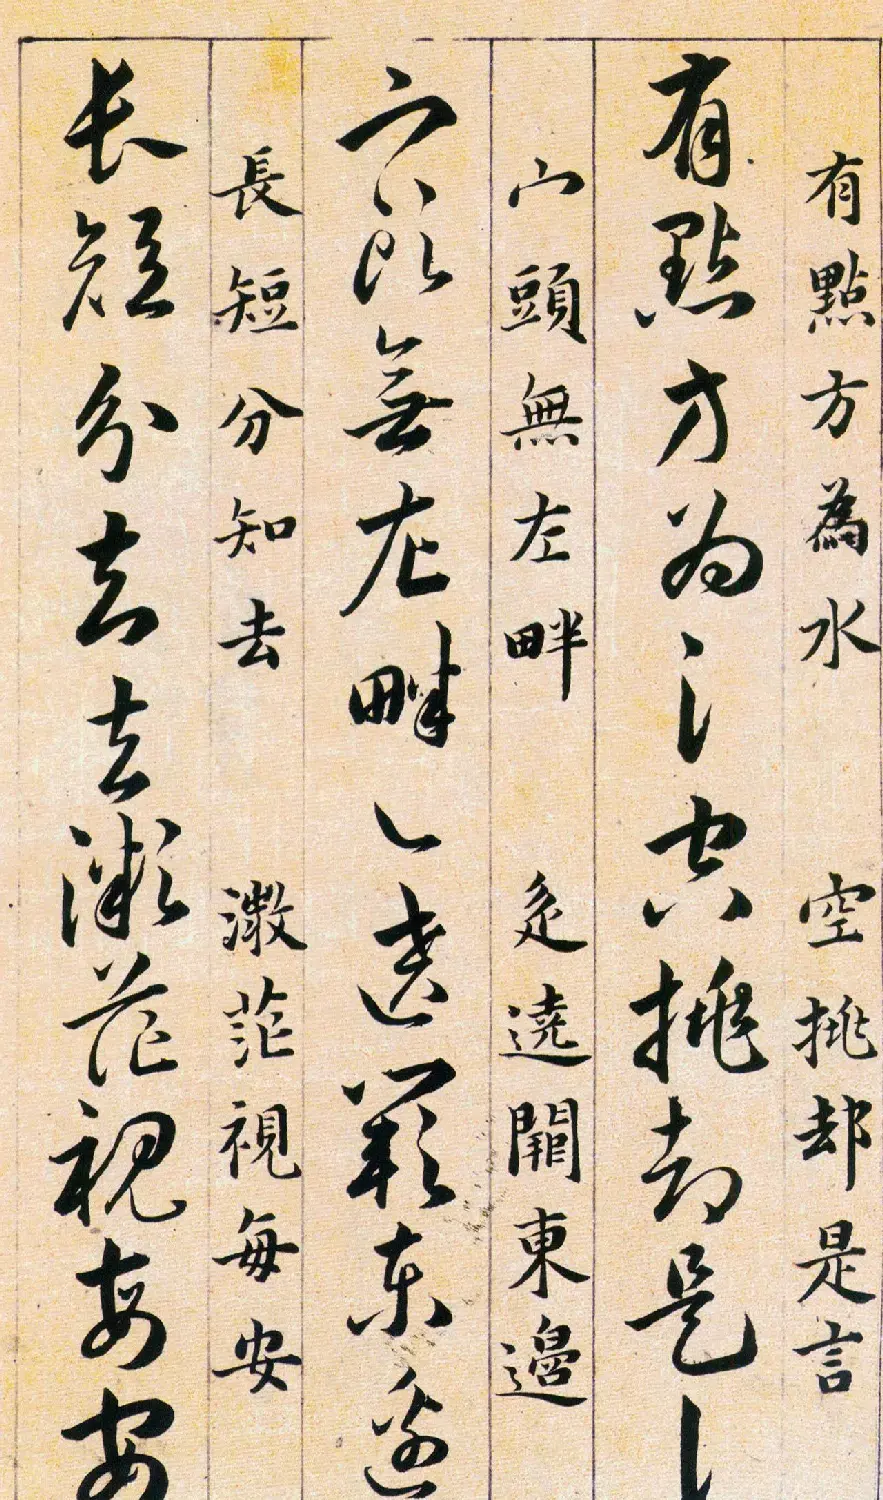 有點方為水 空挑却是言
有點方為氵空挑却是讠
宀頭無左畔 辵遶闕東邊
宀頭無左畔辶遶闕東邊
長短分知去 溦茫視每安
長短分知去溦茫視每安